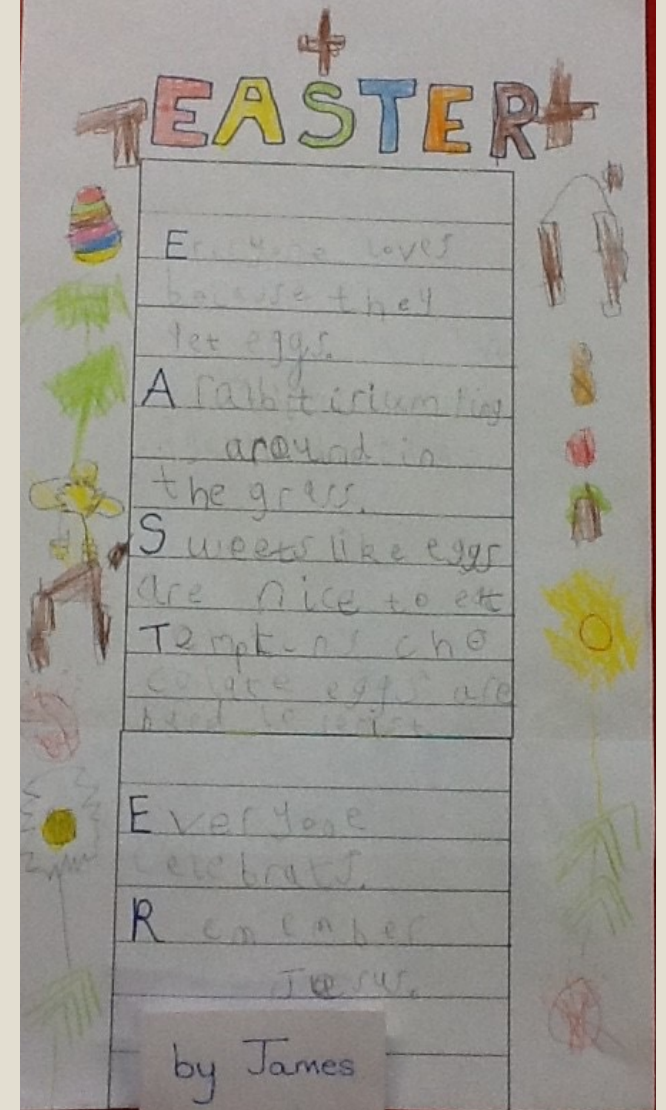 EASTER
Everyone loves
because they
let eggs.
A rabbit
around in
the grass.
Sweets like eggs
are nice to eat
cho
colate eggs are
hard to resist.
Everyone
celebrats.
Remember
Juesus.
by James